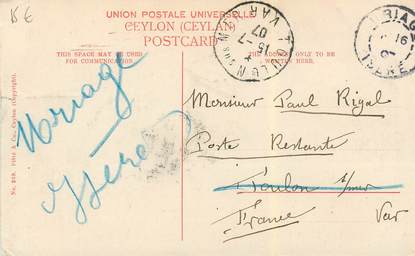 B E
UNION POSTALE UNIVERSELLE
CEYLON (CEYLAN)
POSTCARD
THIS SPACE MAY BE USED
FOR COMMUNICATION.
THE ADDRESS ONLY TO BE
WRITTEN HERE.
TOULON SUR MER
15 -7
07
VAR
URIAGE
16
ISERE
Uriage
Isere
Monsieur Paul Rigal
Poste Restante
Toulon s/mer
France Var